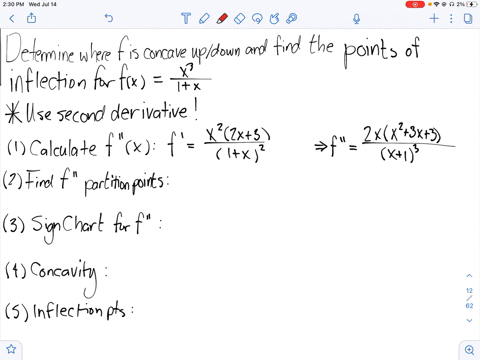 2:30 PM Wed Jul 14
2%
Determine where f is concave up/down and find the points of
inflection for f(x) = x³/(1+x)
* Use second derivative!
(1) Calculate f"(x): f' = x²(2x+3)/(1+x)² ⇒ f" = 2x(x²+3x+3)/(x+1)³
(2) Find f" partition points:
(3) Sign Chart for f":
(4) Concavity:
(5) Inflection pts:
12
/
62